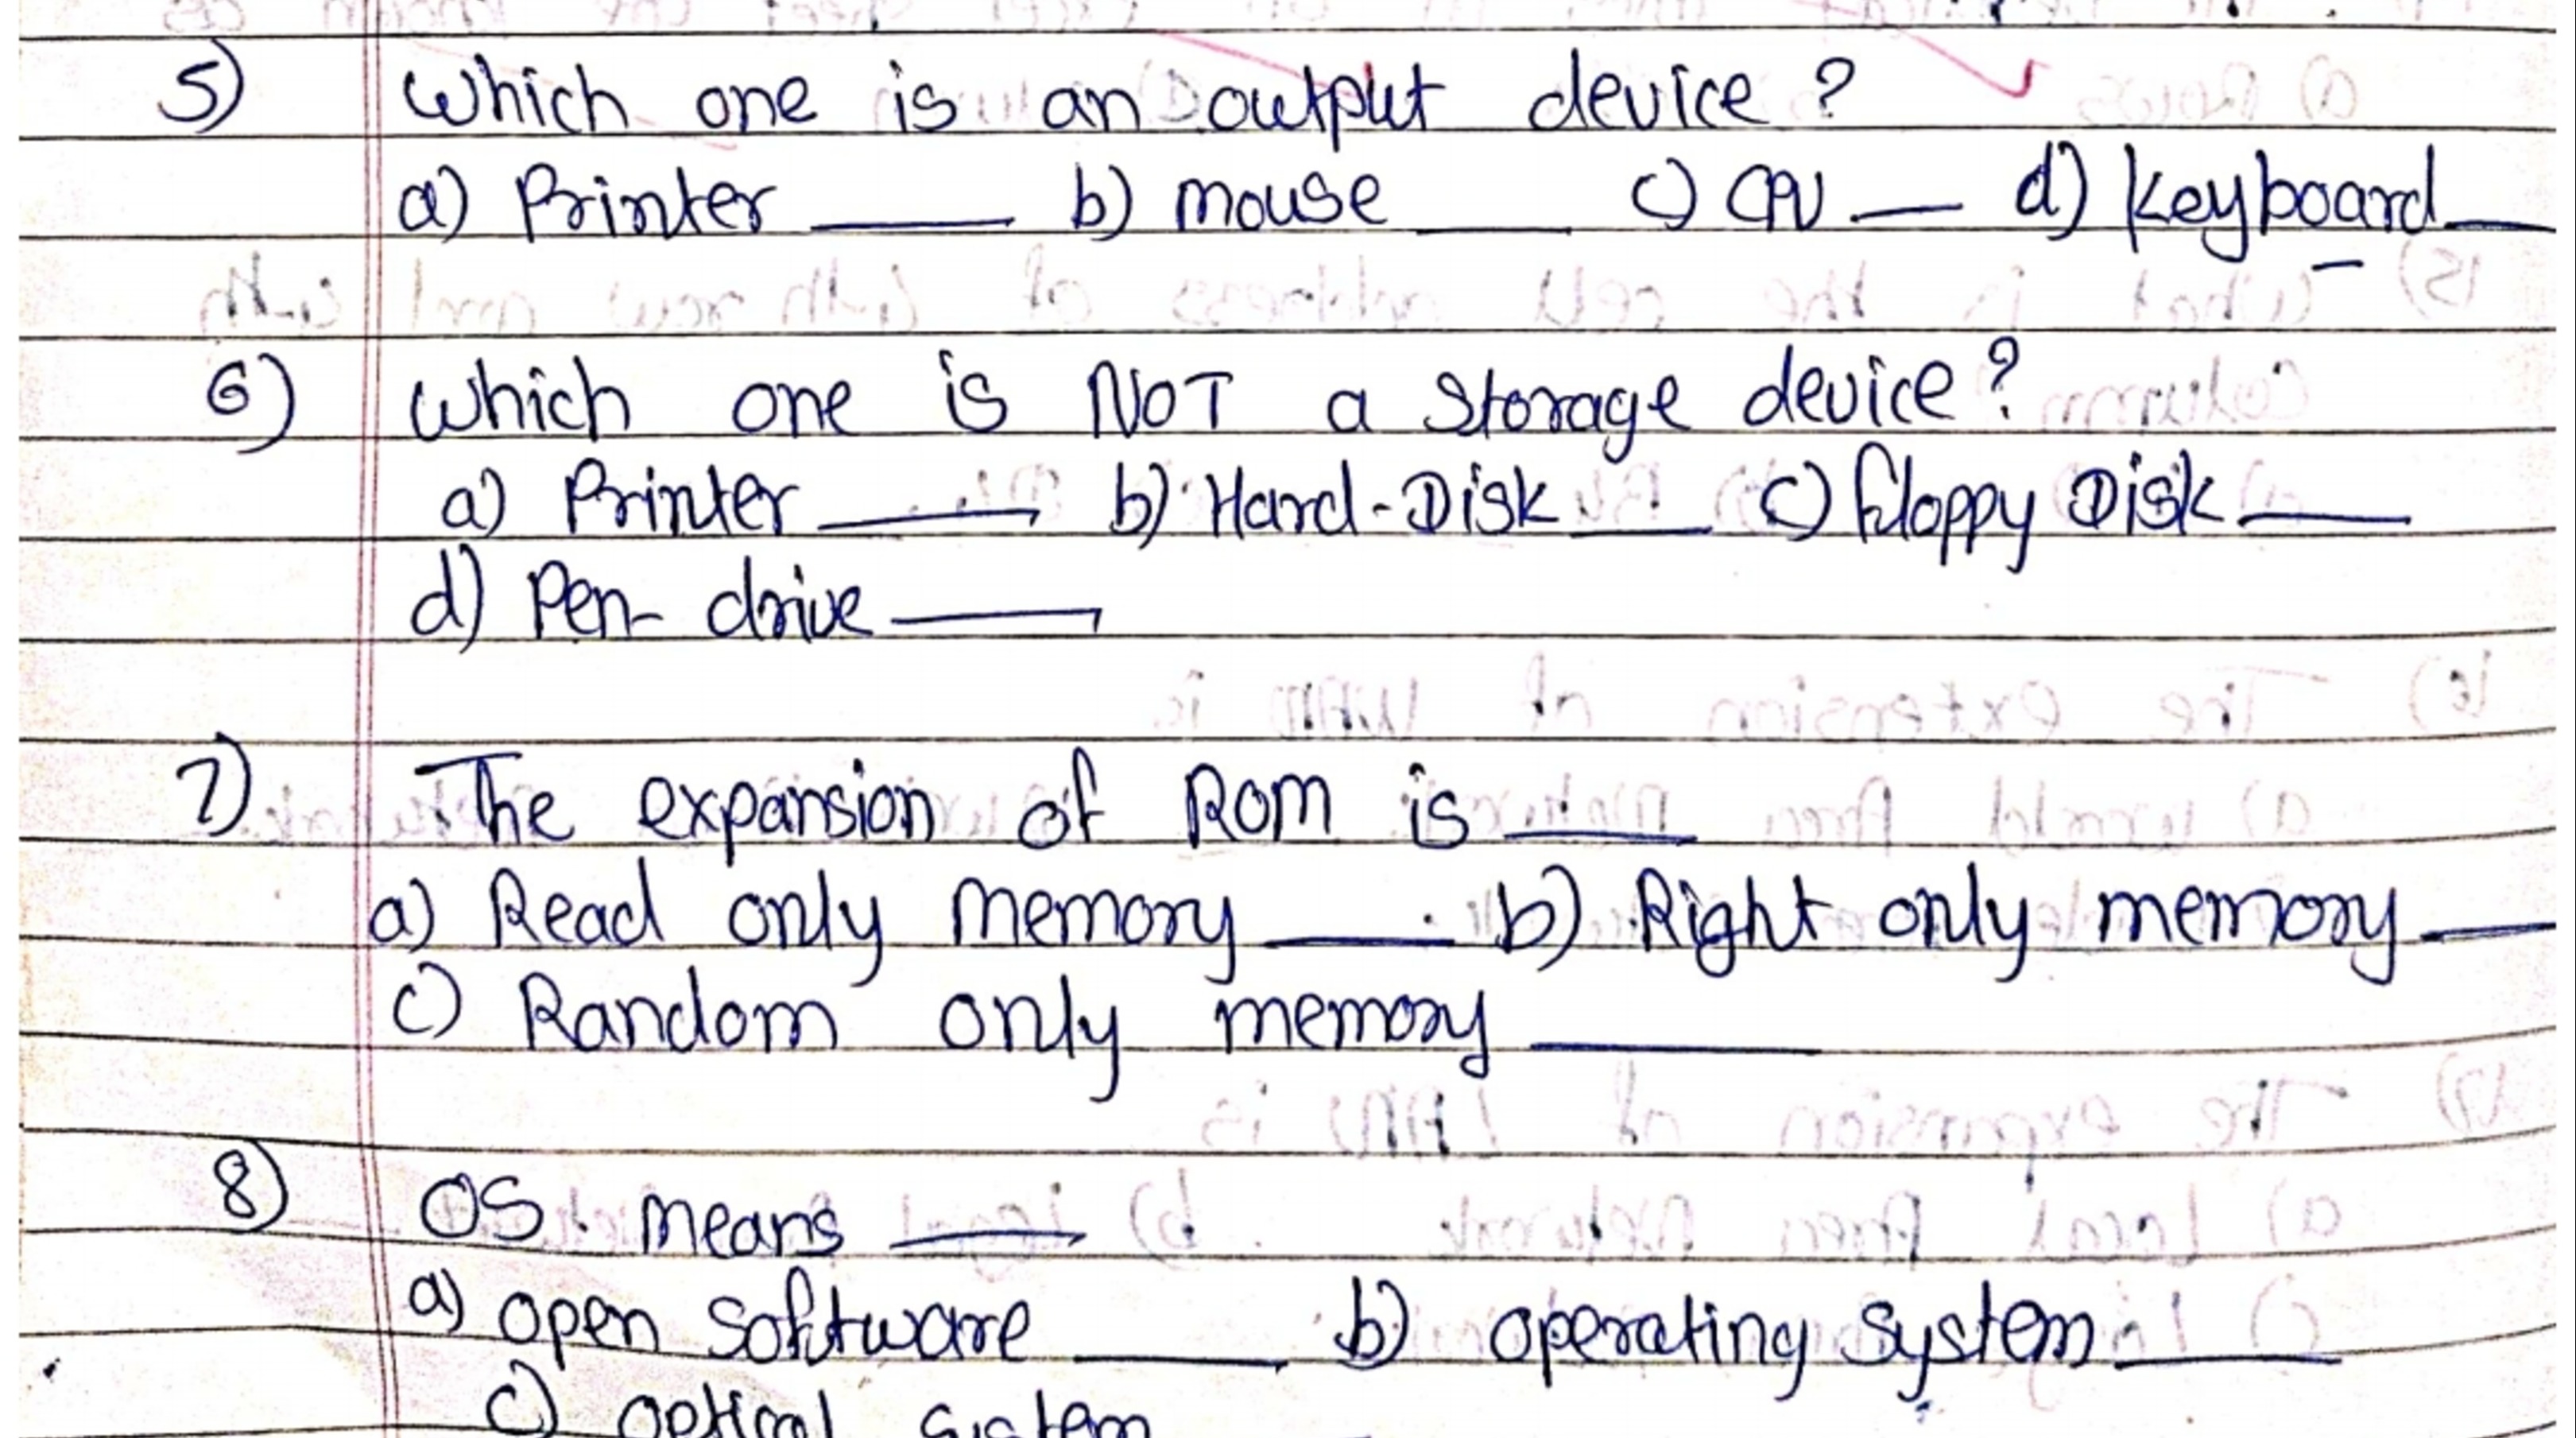 5) Which one is an output device ?
a) Printer ____ b) mouse ____ c) CPU __ d) Keyboard __
6) Which one is NOT a storage device ?
a) Printer ____ b) Hard-Disk ____ c) floppy Disk ____
d) Pen- drive ____
7) The expansion of ROM is ____
a) Read only memory ____ b) Right only memory ____
c) Random only memory ____
8) OS means ____
a) open software ____ b) operating system ____
c) optical system